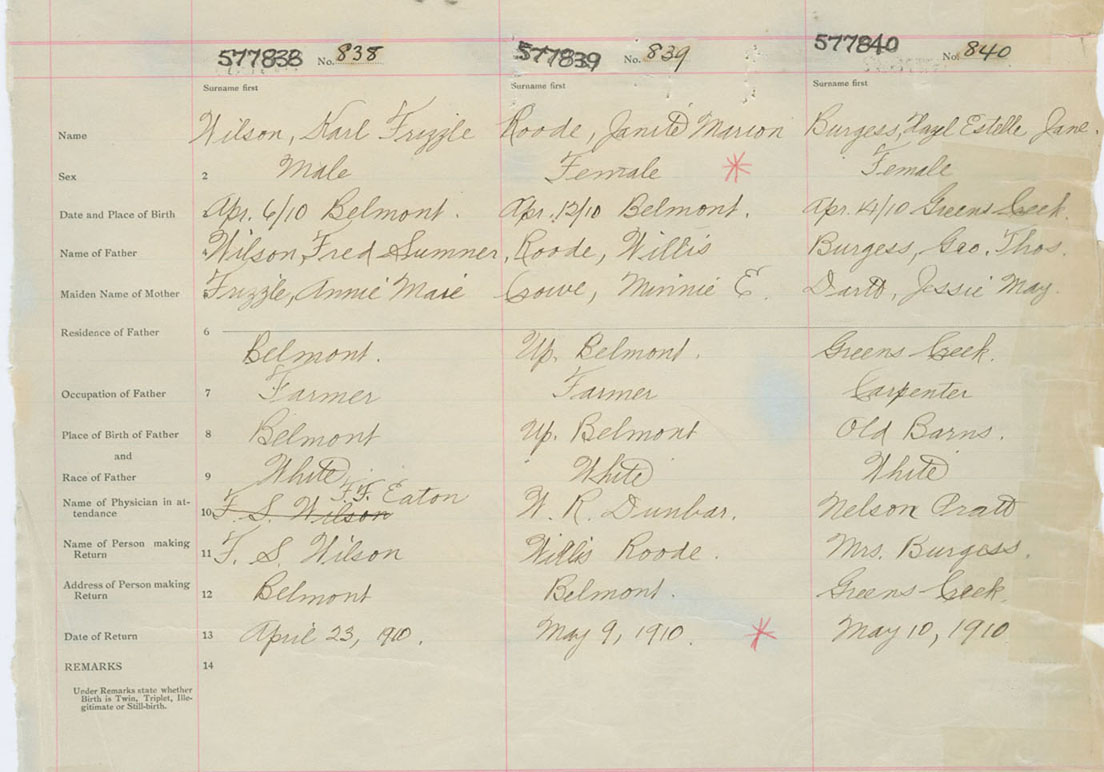 577838 No. 838 577839 No. 839 577840 No. 840
Surname first Surname first Surname first
Name Wilson, Karl Frizzle Roode, Marion Burgess, Hazel Estelle Jane.
Sex 2 Male Female Female
Date and Place of Birth Apr. 6/10 Belmont. Apr. 12/10 Belmont. Apr. 14/10 Greens Creek.
Name of Father Wilson, Fred Sumner, Roode, Willis Burgess, Geo. Thos.
Maiden Name of Mother 5 Frizzle, Annie Marie Crowe, Minnie E. Jessie May.
Residence of Father 6
Belmont. Up. Belmont. Greens Creek.
Occupation of Father 7 Farmer Farmer Carpenter
Place of Birth of Father 8 Belmont Up. Belmont Old Barns.
and
Race of Father 9 White White White
F. F. Eaton
Name of Physician in at-
tendance 10 F. S. Wilson W. R. Dunbar. Nelson Pratt
Name of Person making
Return 11 F. S. Wilson Willis Roode. Mrs. Burgess.
Address of Person making
Return 12 Belmont Belmont. Greens Creek.
Date of Return 13 April 23, 1910. May 9, 1910. May 10, 1910
REMARKS 14
Under Remarks state whether
Birth is Twin, Triplet, Ille-
gitimate or Still-birth.